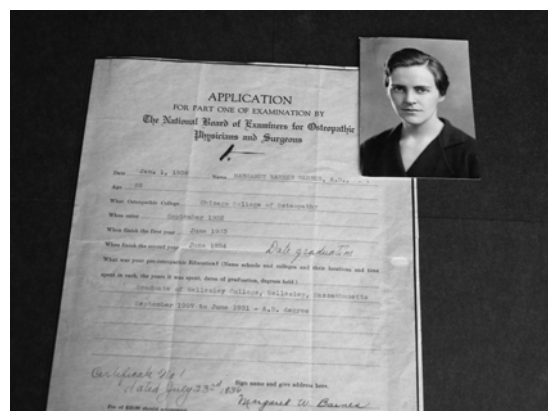 APPLICATION
FOR PART ONE OF EXAMINATION BY
The National Board of Examiners for Osteopathic
Physicians and Surgeons
1.
Date Jan. 1, 1936 Name MARGARET WARREN BARNES, A.B.,
Age 25
What Osteopathic College Chicago College of Osteopathy
When enter September 1932
When finish the first year June 1933
When finish the second year June 1934 Date graduation
What was your pre-osteopathic Education? (Name schools and colleges and their locations and time
spent in each, the years it was spent, dates of graduation, degrees held.)
Graduate of Wellesley College, Wellesley, Massachusetts
September 1927 to June 1931 - A.B. degree
Certificate No 1
Dated July 23rd 1936
Sign name and give address here.
Margaret W. Barnes